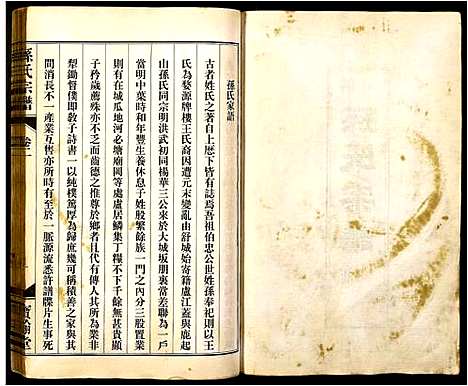 孫氏家語
古者姓氏之著自上歷下皆有誌焉吾祖伯忠公世姓孫奉祀則以王
氏為婺源牌樓王氏裔因遭元末變亂由舒城始寄籍廬江蓋與鹿起
山孫氏同宗明洪武初同楊華三公來於大城坂朋裏當差聯為一戶
當明中葉時和年豐生養休息子姓股繁餘族一門之內分三股置業
則有在城瓜地河必塘廟岡等處廬居鱗集丁糧不下千餘無甚貴顯
子矜歲薦殊亦乏而齒德之推尊於鄉者且代有傳人其所為業非
犁鋤督僕即教子詩書一以純樸篤厚為歸庶幾可稱積善之家與其
間消長不一產業互售亦所時有至於一脈源流悉許譜牒片生事死
孫氏宗譜
卷一
寶翰堂